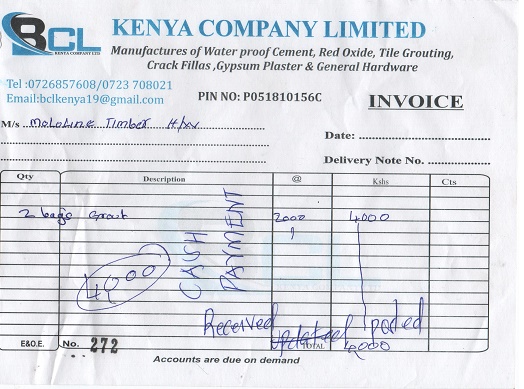 BCL
KENYA COMPANY LTD
KENYA COMPANY LIMITED
Manufactures of Water proof Cement, Red Oxide, Tile Grouting,
Crack Fillas ,Gypsum Plaster & General Hardware
Tel :0726857608/0723 708021
Email:bclkenya19@gmail.com
PIN NO: P051810156C
INVOICE
M/s Timber H/w
Date:
Delivery Note No.
Qty Description @ Kshs Cts
2 bags Grout 2000 4000
4000
CASH
PAYMENT
Received
TOTAL 4000
E&O.E. No. 272
Accounts are due on demand